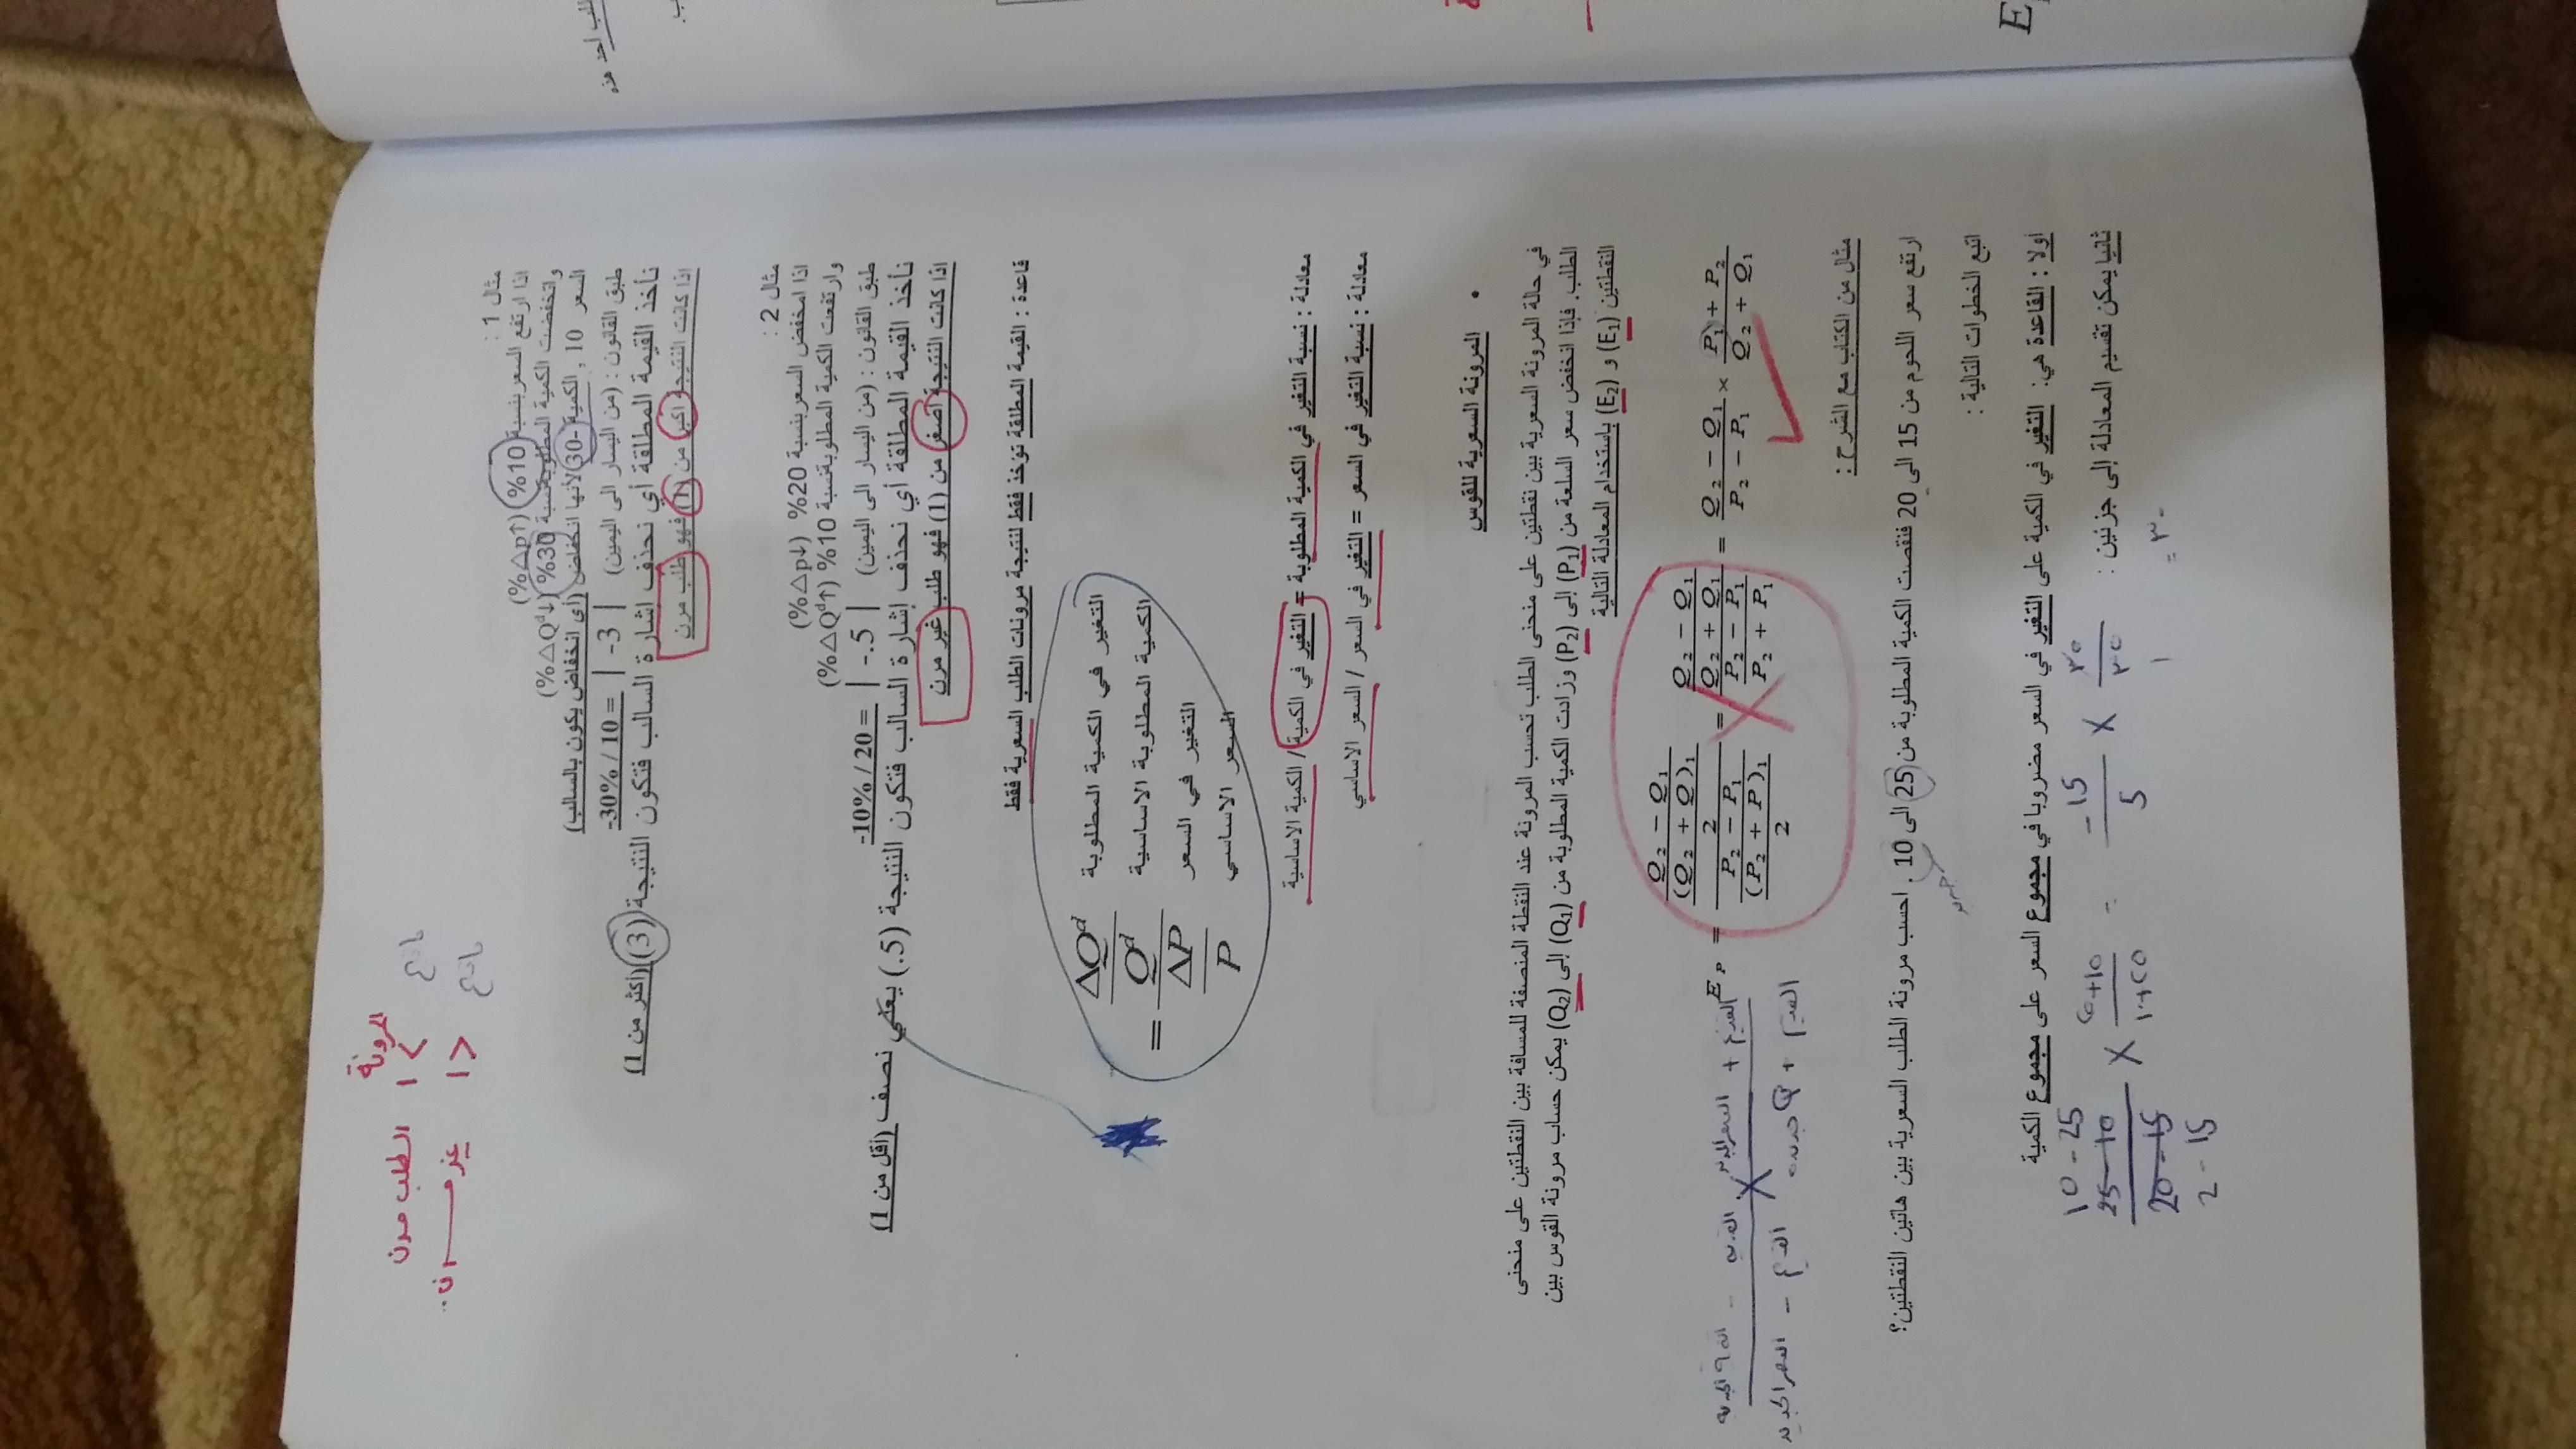 المرونة
الطلب مرن 1 <
1 >
مثال 1 :
اذا ارتفع السعر بنسبة 10% (%△p↑)
وانخفضت الكمية المطلوبة بنسبة 30% (%△Qd↓)
السعر 10 , الكمية -30 لأنها انخفاض (أي انخفاض يكون بالسالب)
طبق القانون : (من اليسار الى اليمين) | -3 | = -30% / 10
نأخذ القيمة المطلقة أي نحذف اشارة السالب فتكون النتيجة (3) (أكثر من 1)
اذا كانت النتيجة اكبر من (1) فهو طلب مرن
مثال 2 :
اذا انخفض السعر بنسبة 20% (%△p↓)
وارتفعت الكمية المطلوبة بنسبة 10% (%△Qd↑)
طبق القانون : (من اليسار الى اليمين) | -.5 | = -10% / 20
نأخذ القيمة المطلقة أي نحذف إشارة السالب فتكون النتيجة (5.) يعني نصف (أقل من 1)
اذا كانت النتيجة أصغر من (1) فهو طلب غير مرن
قاعدة : القيمة المطلقة تؤخذ فقط لنتيجة مرونات الطلب السعرية فقط
ΔQd التغير في الكمية المطلوبة
Qd الكمية المطلوبة الاساسية
=
ΔP التغير في السعر
P السعر الاساسي
معادلة : نسبة التغير في الكمية المطلوبة = التغير في الكمية / الكمية الاساسية
معادلة : نسبة التغير في السعر = التغير في السعر / السعر الاساسي
• المرونة السعرية للقوس
في حالة المرونة السعرية بين نقطتين على منحنى الطلب تحسب المرونة عند النقطة المنصفة للمسافة بين النقطتين على منحنى
الطلب. فإذا انخفض سعر السلعة من (P1) إلى (P2) وزادت الكمية المطلوبة من (Q1) إلى (Q2) يمكن حساب مرونة القوس بين
النقطتين (E1) و (E2) باستخدام المعادلة التالية
Ep = ((Q2 − Q1) / ((Q2 + Q)1 / 2)) / ((P2 − P1) / ((P2 + P)1 / 2)) = ((Q2 − Q1) / (Q2 + Q1)) / ((P2 − P1) / (P2 + P1)) = (Q2 − Q1) / (P2 − P1) × (P1 + P2) / (Q2 + Q1)
مثال من الكتاب مع الشرح :
ارتفع سعر اللحوم من 15 الى 20 فنقصت الكمية المطلوبة من 25 الى 10 . احسب مرونة الطلب السعرية بين هاتين النقطتين؟
اتبع الخطوات التالية :
أولا : القاعدة هي: التغير في الكمية على التغير في السعر مضروبا في مجموع السعر على مجموع الكمية
ثانيا يمكن تقسيم المعادلة إلى جزئين :
10 - 25
25 - 10
20 - 15
2 - 15
= -15 / 5 × ٣٥ / ٣٥ = ٣-
١